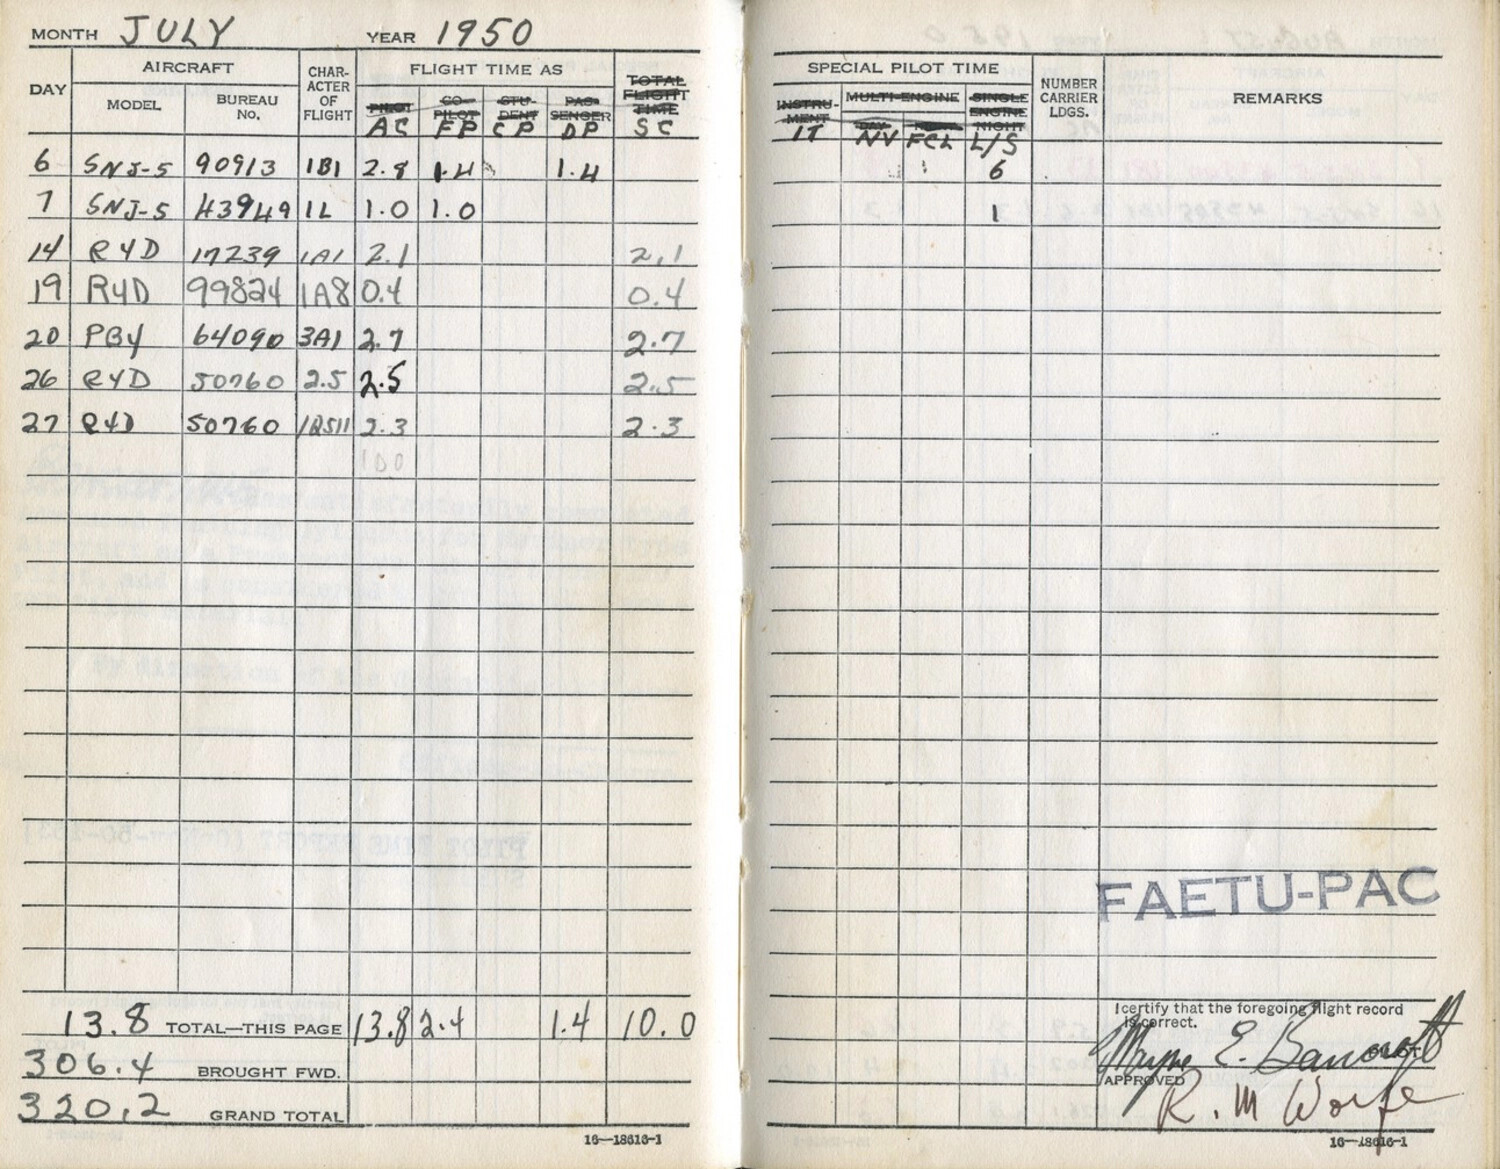 MONTH JULY YEAR 1950
DAY AIRCRAFT CHAR-ACTER OF FLIGHT FLIGHT TIME AS TOTAL FLIGHT TIME SC
MODEL BUREAU No. PILOT AC CO-PILOT FP STU-DENT CP PAS-SENGER DP
6 SNJ-5 90913 1B1 2.8 1.4 1.4
7 SNJ-5 43949 1L 1.0 1.0
14 R4D 17239 1A1 2.1 2.1
19 R4D 99824 1A8 0.4 0.4
20 PB4 64090 3A1 2.7 2.7
26 R4D 50760 2.5 2.5 2.5
27 R4D 50760 2.3 2.3
100
13.8 TOTAL—THIS PAGE 13.8 2.4 1.4 10.0
306.4 BROUGHT FWD.
320.2 GRAND TOTAL
16—18616-1
SPECIAL PILOT TIME NUMBER CARRIER LDGS. REMARKS
INSTRU-MENT IT MULTI-ENGINE SINGLE ENGINE NIGHT L/S
DAY NV FCL
6
1
FAETU-PAC
I certify that the foregoing flight record
is correct.
Wayne E. Bancroft
PILOT
APPROVED
R. M Worfe
16—18616-1